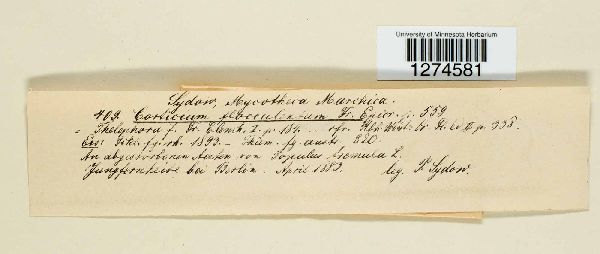 University of Minnesota Herbarium
1274581
Sydow, Mycotheca Marchica.
409. Corticium flocculentum Fr. Epicr. p. 559
Thelephora f. Fr. Elench. I. p. 184. Rbh. Kryt. Fl. Ed. II p. 338.
Exs: 1893. - Thüm. fg. austr. 520.
An abgestorbenen Aesten von Populus tremula L.
Jungfernheide bei Berlin. April 1883. leg. P. Sydow.